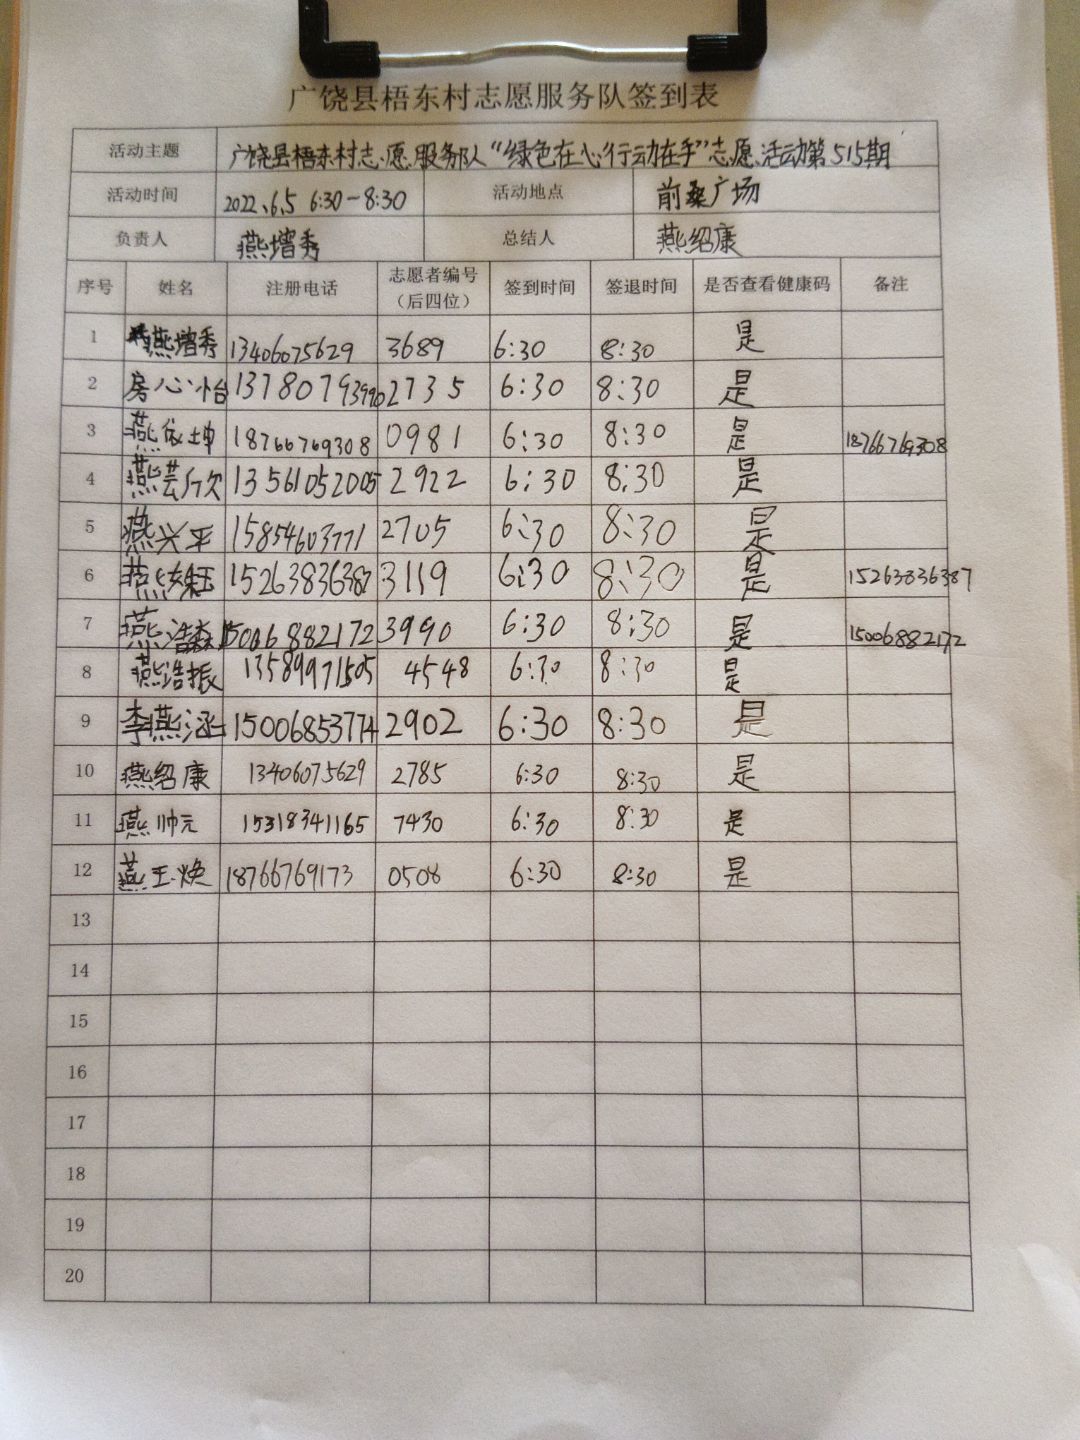 广饶县梧东村志愿服务队签到表
活动主题 广饶县梧东村志愿服务队“绿色在心行动在手”志愿活动第515期
活动时间 2022.6.5 6:30-8:30 活动地点 前桑广场
负责人 燕增秀 总结人 燕绍康
序号 姓名 注册电话 志愿者编号（后四位） 签到时间 签退时间 是否查看健康码 备注
1 燕增秀 13406075629 3689 6:30 8:30 是
2 房心怡 13780793990 2735 6:30 8:30 是
3 燕依坤 18766769308 0981 6:30 8:30 是 18766769308
4 燕芸欣 13561052005 2922 6:30 8:30 是
5 燕兴平 15854603771 2705 6:30 8:30 是
6 燕 15263836387 3119 6:30 8:30 是 15263836387
7 燕浩森 15006882172 3990 6:30 8:30 是 15006882172
8 燕浩振 13589971505 4548 6:30 8:30 是
9 李燕涵 15006853774 2902 6:30 8:30 是
10 燕绍康 13406075629 2785 6:30 8:30 是
11 燕帅元 15318341165 7430 6:30 8:30 是
12 燕玉焕 18766769173 0508 6:30 8:30 是
13
14
15
16
17
18
19
20